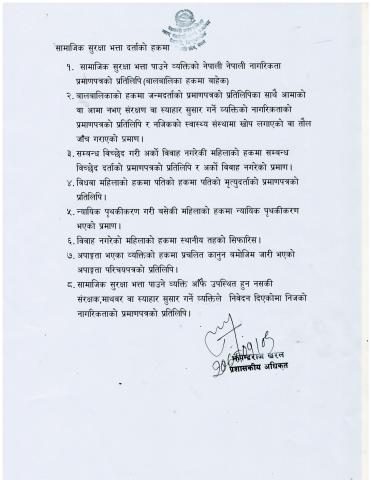 सामाजिक सुरक्षा भत्ता दर्ताको हकमा
१. सामाजिक सुरक्षा भत्ता पाउने व्यक्तिको नेपाली नेपाली नागरिकता
प्रमाणपत्रको प्रतिलिपि (बालबालिका हकमा बाहेक)
२. बालबालिकाको हकमा जन्मदर्ताको प्रमाणपत्रको प्रतिलिपिका साथै आमाको
वा आमा नभए संरक्षण वा स्याहार सुसार गर्ने व्यक्तिको नागरिकताको
प्रमाणपत्रको प्रतिलिपि र नजिकको स्वास्थ्य संस्थामा खोप लगाएको वा तौल
जाँच गराएको प्रमाण।
३. सम्बन्ध विच्छेद गरी अर्को विवाह नगरेकी महिलाको हकमा सम्बन्ध
विच्छेद दर्ताको प्रमाणपत्रको प्रतिलिपि र अर्को विवाह नगरेको प्रमाण।
४. विधवा महिलाको हकमा पतिको हकमा पतिको मृत्युदर्ताको प्रमाणपत्रको
प्रतिलिपि।
५. न्यायिक पृथकीकरण गरी बसेकी महिलाको हकमा न्यायिक पृथकीकरण
भएको प्रमाण।
६. विवाह नगरेको महिलाको हकमा स्थानीय तहको सिफारिस।
७. अपाङ्गता भएका व्यक्तिको हकमा प्रचलित कानुन वमोजिम जारी भएको
अपाङ्गता परिचयपत्रको प्रतिलिपि।
८. सामाजिक सुरक्षा भत्ता पाउने व्यक्ति आफैँ उपस्थित हुन नसकी
संरक्षक,माथवर वा स्याहार सुसार गर्ने व्यक्तिले निवेदन दिएकोमा निजको
नागरिकताको प्रमाणपत्रको प्रतिलिपि।
खरेल
प्रशासकीय अधिकृत